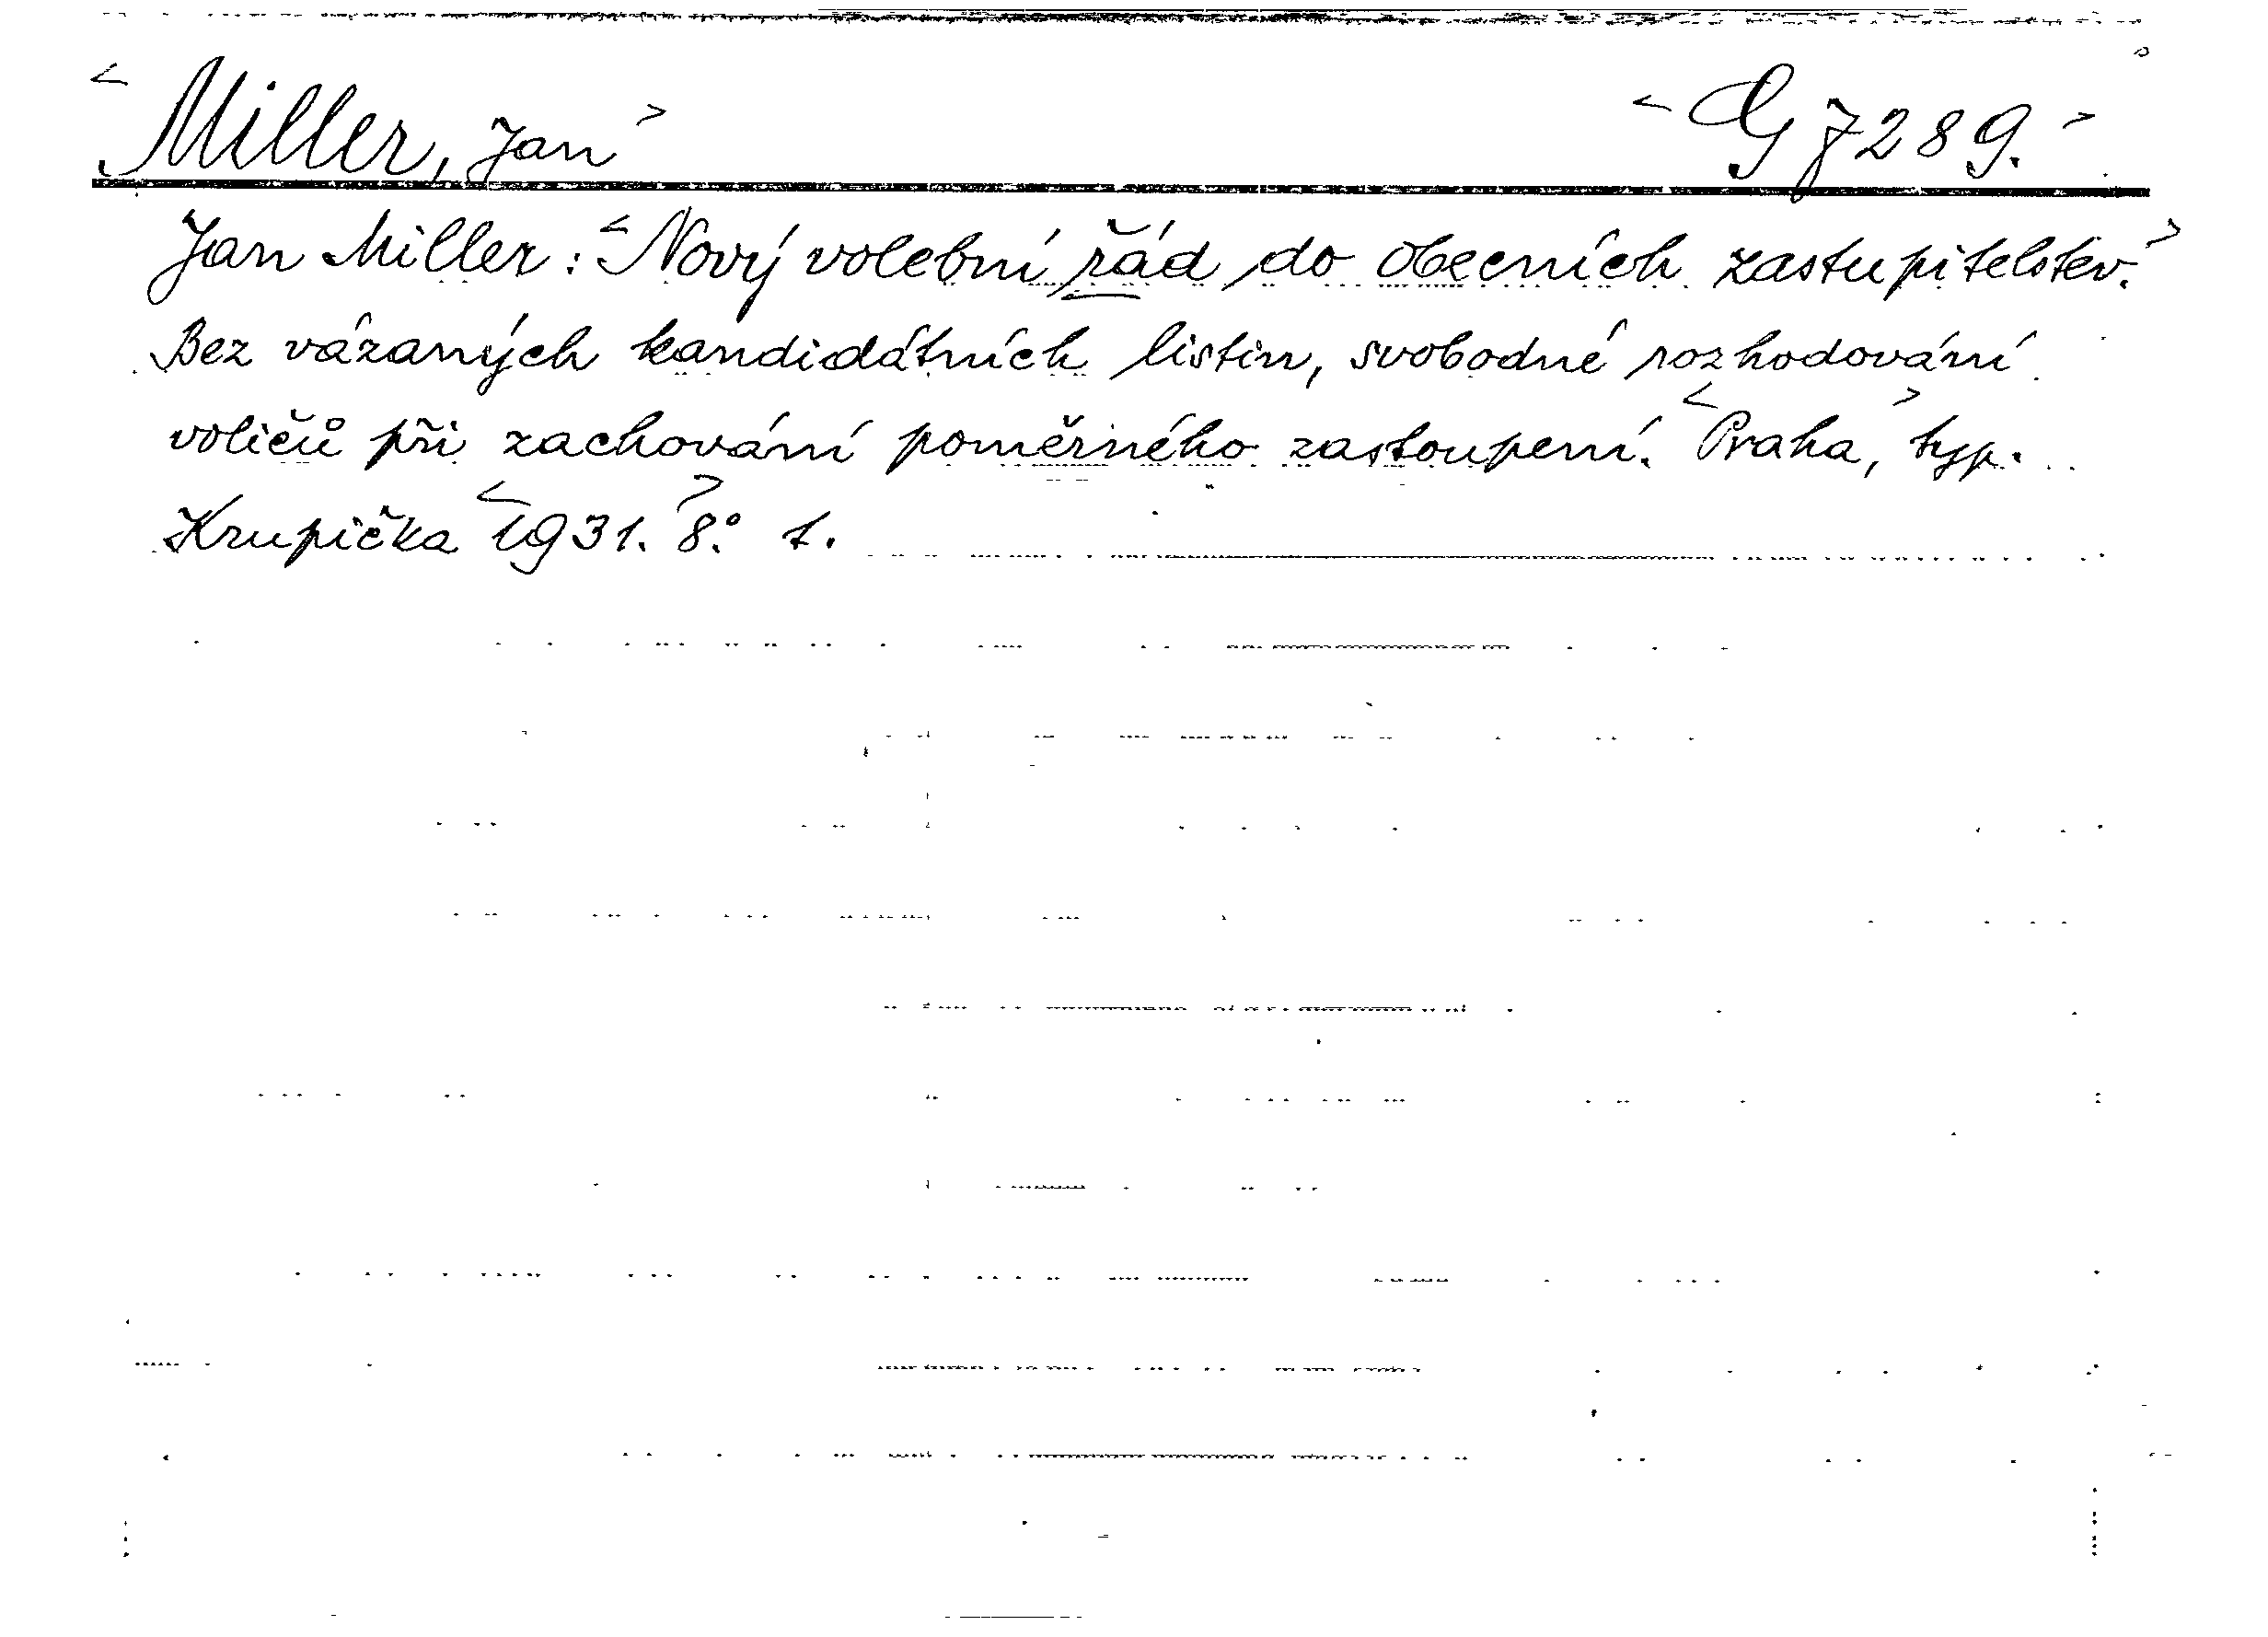 <Miller, Jan> <G 7289.>
Jan Miller: <Nový volební řád do obecních zastupitelstev.>
Bez vázaných kandidátních listin, svobodné rozhodování
voličů při zachování poměrného zastoupení. <Praha,> typ.
Krupička <1931.> 8.° 1.